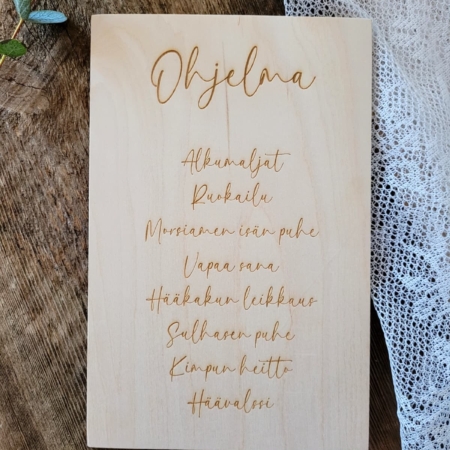 Ohjelma
Alkumaljat
Ruokailu
Morsiamen isän puhe
Vapaa sana
Hääkakun leikkaus
Sulhasen puhe
Kimpun heitto
Häävalssi